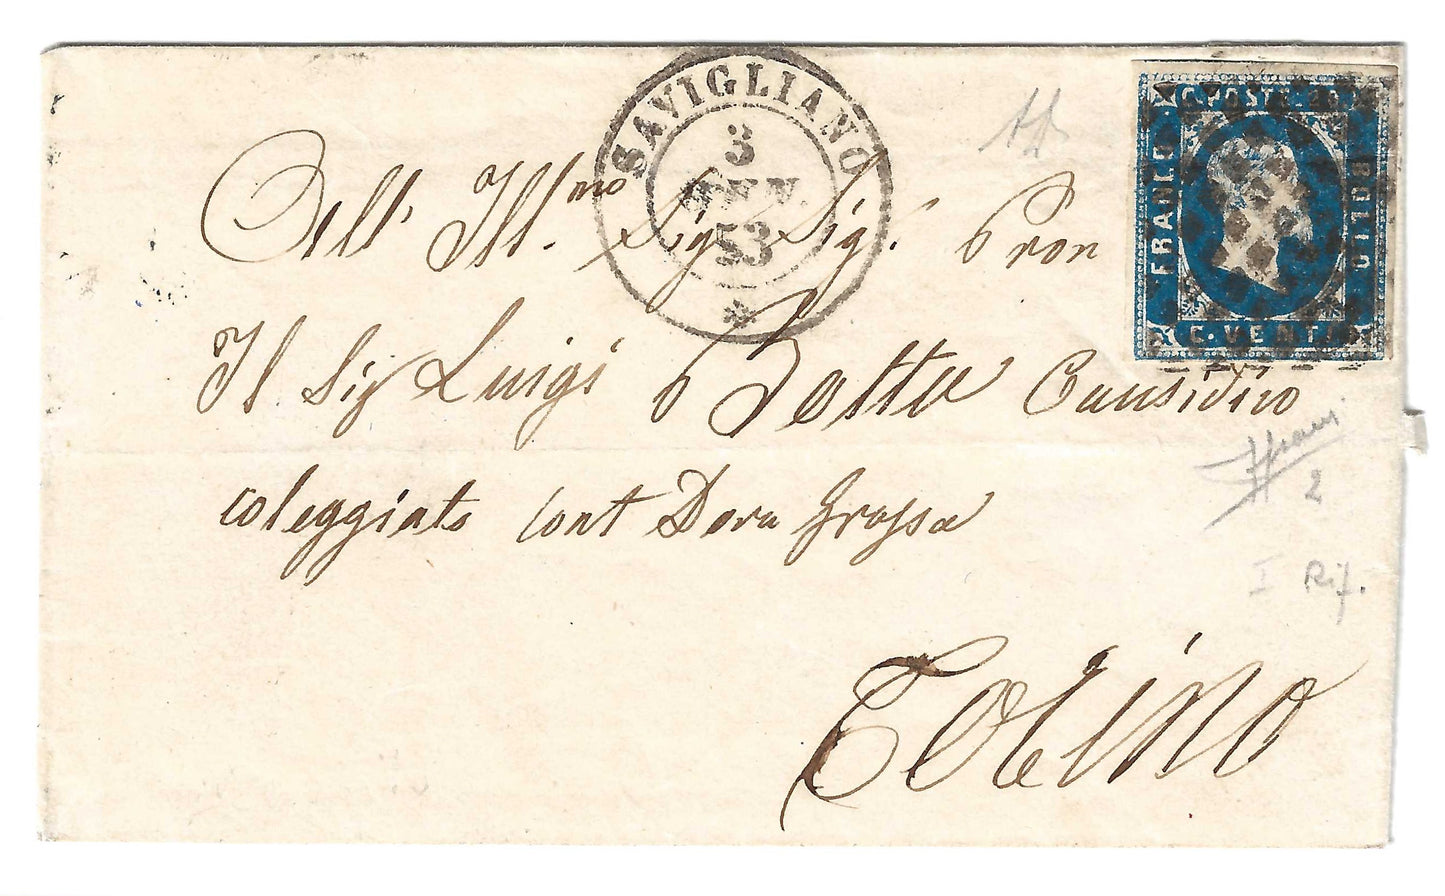 SAVIGLIANO
3
GENN.
53
C. POSTE 20
FRANCO
BOLLO
C. VENTI
All' Ill.mo Sig. Sig. Pron
Il Sig Luigi Botta Causidico
coleggiato cont Dora Grossa
Torino
2
I Rif.